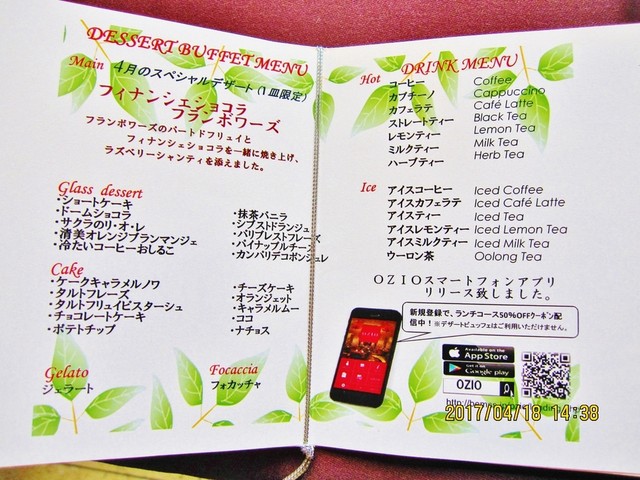 DESSERT BUFFET MENU
Main 4月のスペシャルデザート(1皿限定)
フィナンシェショコラ
フランボワーズ
フランボワーズのパートドフリュイと
フィナンシェショコラを一緒に焼き上げ、
ラズベリーシャンティを添えました。
Glass dessert
・ショートケーキ
・ドームショコラ
・サクラのリ・オ・レ
・清美オレンジブランマンジェ
・冷たいコーヒーおしるこ
・抹茶バニラ
・シブストドランジュ
・パリブレストフレーズ
・パイナップルチーズ
・カンパリデコポンジュレ
Cake
・ケークキャラメルノワ
・タルトフレーズ
・タルトフリュイピスターシュ
・チョコレートケーキ
・ポテトチップ
・チーズケーキ
・オランジェット
・キャラメルムー
・ココ
・ナチョス
Gelato
ジェラート
Focaccia
フォカッチャ
DRINK MENU
Hot
コーヒー Coffee
カプチーノ Cappuccino
カフェラテ Café Latte
ストレートティー Black Tea
レモンティー Lemon Tea
ミルクティー Milk Tea
ハーブティー Herb Tea
Ice
アイスコーヒー Iced Coffee
アイスカフェラテ Iced Café Latte
アイスティー Iced Tea
アイスレモンティー Iced Lemon Tea
アイスミルクティー Iced Milk Tea
ウーロン茶 Oolong Tea
OZIOスマートフォンアプリ
リリース致しました。
新規登録で、ランチコース50%OFFクーポン配
信中!※デザートビュッフェはご利用いただけません。
Available on the
App Store
Get it on
Google play
OZIO
2017/04/18 14:38